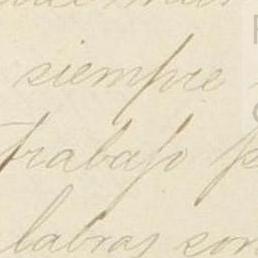 siempre
trabajo p
labras son